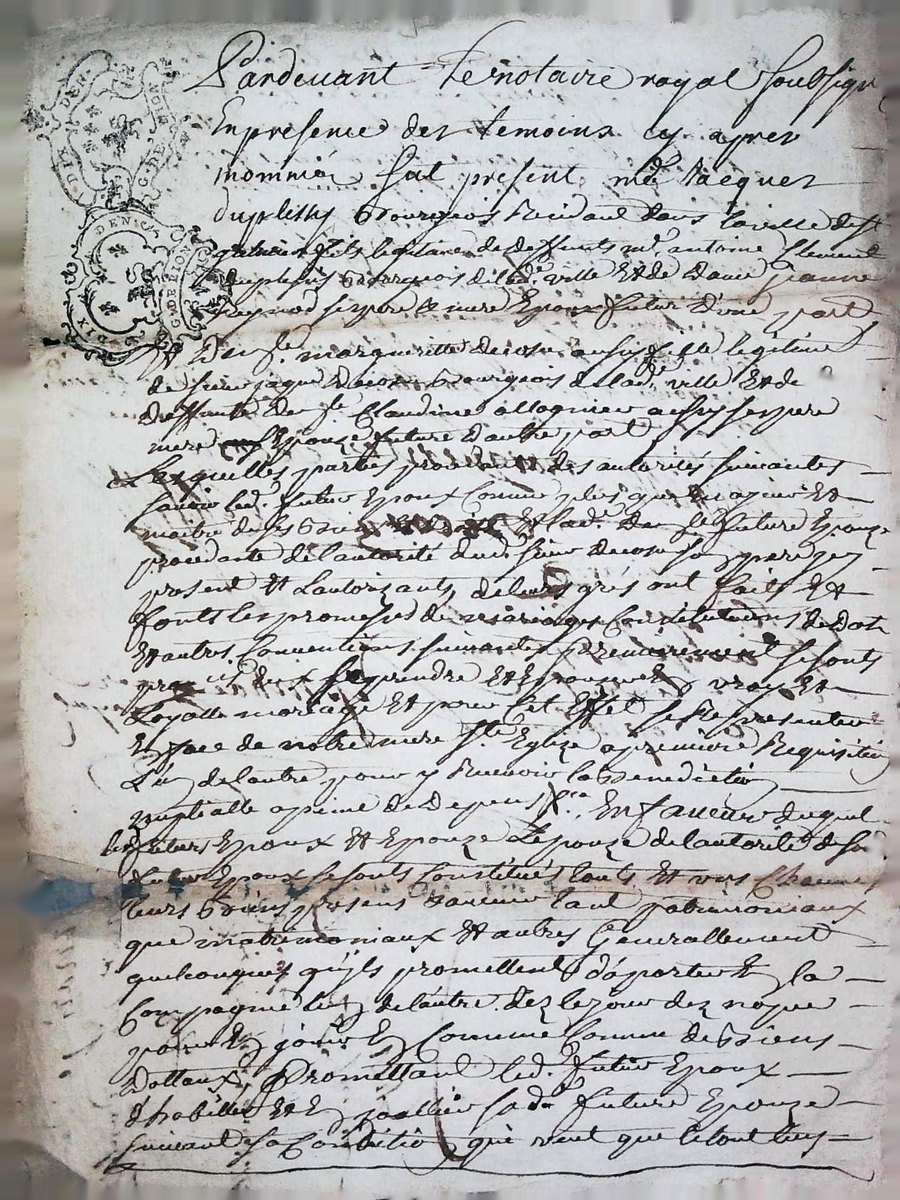 DIX DEN
G. DE LION
DIX DEN
G. DE LION
Pardevant Le notaire royal soubsigne
En presence des temoins cy apres
nommés fut present, mr Jacques
Duplessis Bourgeois Residant dans la ville de st
fils legitime de deffunts mr. antoine Clement
Duplessis bourgeois de lad. ville Et de Dame Jeanne
ses pere & mere Epoux futur D'une part
Et Delle. marguerite aussy fille legitime
de sieur jaque bourgeois de lad. ville Et de
deffunte Delle. Claudine allognier aussy ses pere
mere Epouse future D'autre part
Lesquelles parties procedant des autorités suivantes
savoir led. futur Epoux Comme plus que majeur Et
maitre de ses Biens Et lad. Delle future Epouze
procedante de Lautorité dud. sieur son pere icy
present Et Lautorizant, de leurs grés ont faits Et
fonts les promesses de mariage, Constitutions de Dot
Et autres Conventions suivantes premierement se sonts
promis Eux se prendre Et Epouzer En vray Et
Loyalle mariage Et pour Cet Effet se Representer
En face de notre mere Ste. Eglize a premiere Requisition
L'un de Lautre pour y Recevoir la Benediction
nuptialle a peine de Depens En faveur duquel
les futurs Epoux Et Epouze Lepouze de Lautorité de son
futur Epoux se sonts Constitués touts Et uns Chacuns
leurs Biens presens & avenir tant patrimoniaux
que matrimoniaux Et autres Generallement
quelconques qu'ils promettent d'aporter En la
Compagnie L'un de Lautre dez le jour dez nopces
pour En jouir En Comme Comme de Biens
Dottaux, Promettant led. futur Epoux
d'habiller Et En joaillier sa de. future Epouze
suivant sa Condition qui vont que le tout luy